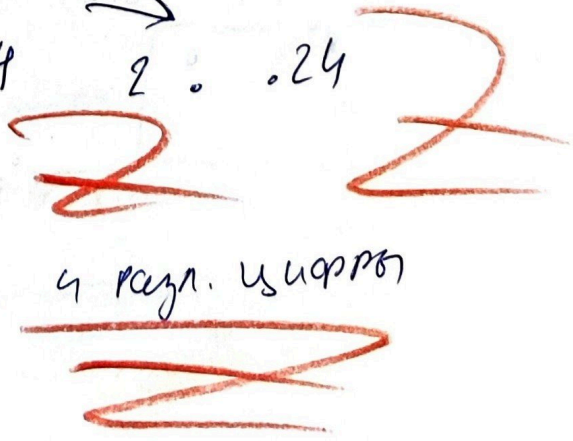 2 . .24
4 разл. цифры